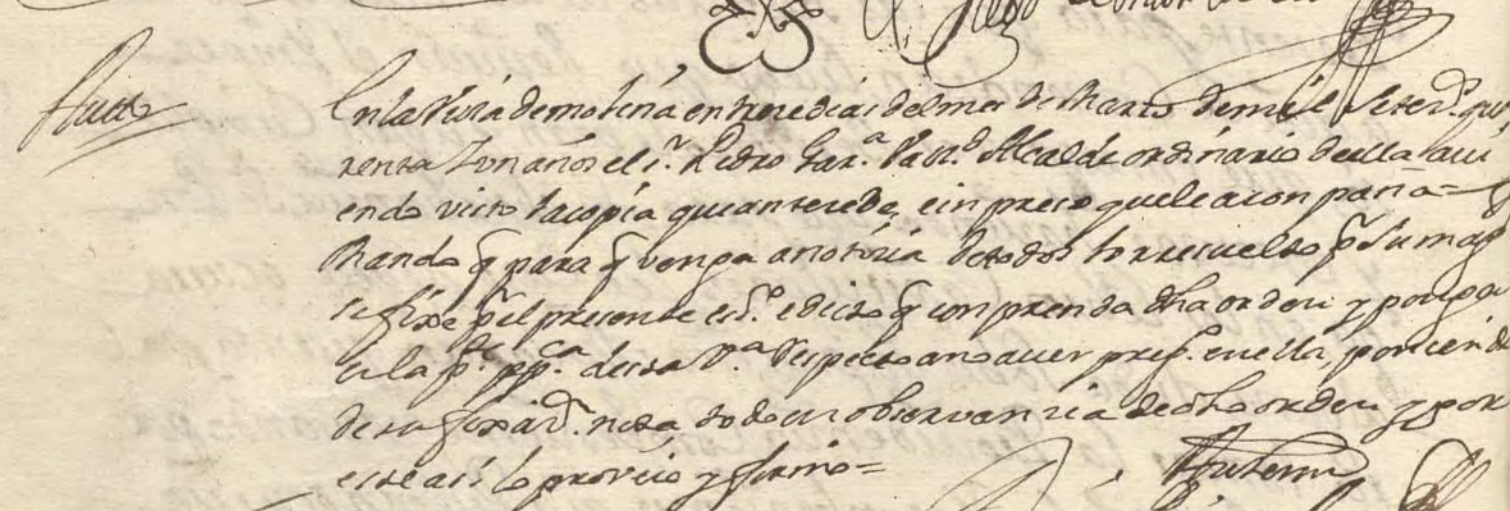 Auto
En la Villa de molina en trece dias del mes de Marzo de mil setez.s qua
renta y un años el s.r Pedro Gar.a Alcalde ordinario de ella avi
endo visto la copia que antesede, e inpreso que le acompaña =
Mando q para q venga a notizia de todos lo rresuelto p.r Su mag
se fixe p.r el presente es.no edicto q comprenda dha orden y ponga
en la de esta V.a Respecto a no aver preg.o en ella, poniendo
de su fixaz.n nota todo en observanzia de dha orden y por
este asi lo proveio y firmo =
Ante mi